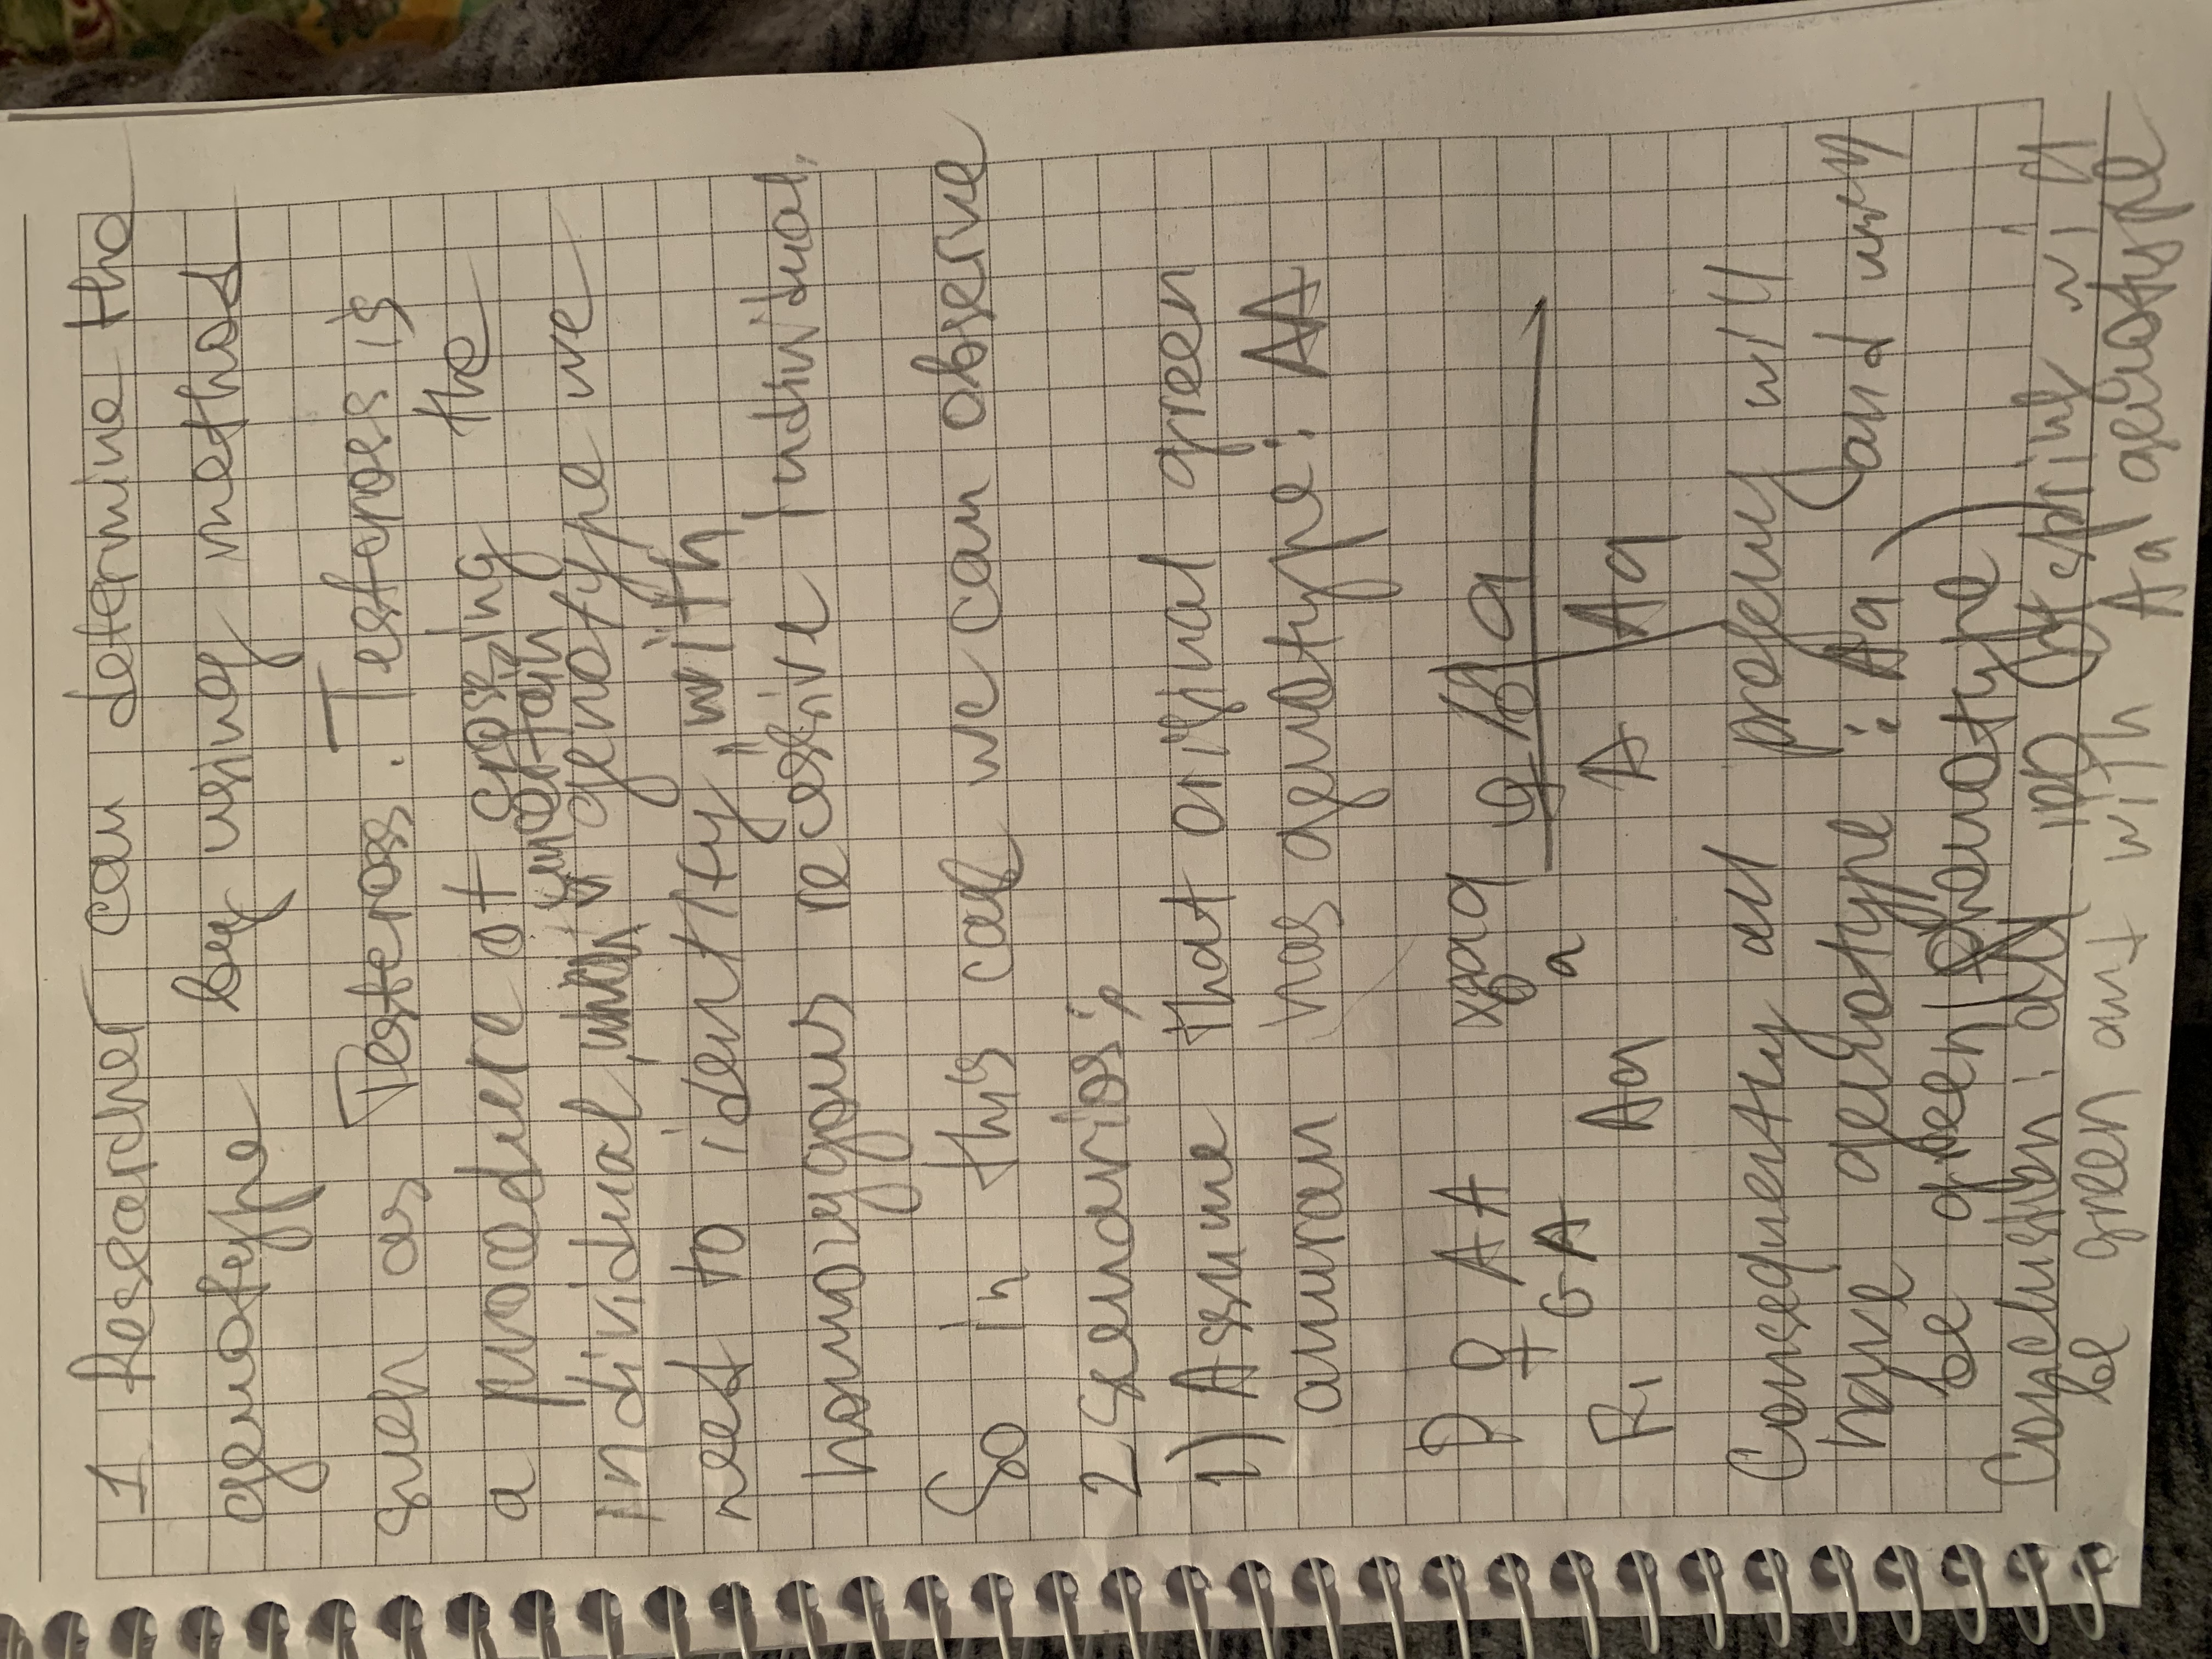 1 Researcher can determine the
genotype by using method
such as Testcross. Testcross is
a procedure of crossing the
uncertain
individual, genotype we
need to identify, with
homozygous recessive individual.
So in this case we can observe
2 scenarios:
1) Assume that original green
anuran has genotype: AA
P ♀ AA x ♂ aa ♀/♂ a
G A a A Aa
F1 Aa
Consequently all progeny will
have genotype: Aa (and will
be green phenotype)
Conclusion: all 100 offspring will
be green ant with Aa genotype